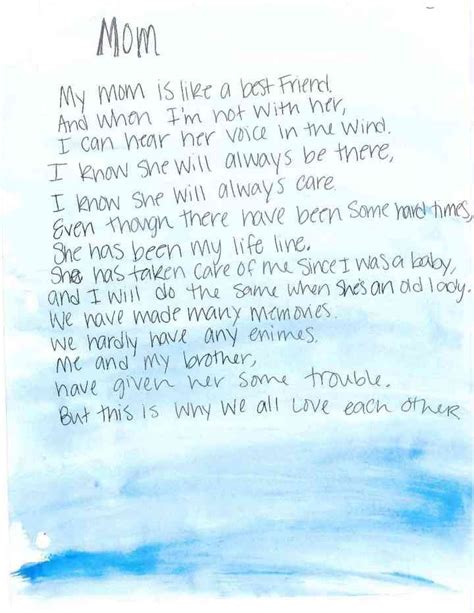 Mom
My mom is like a best Friend.
And when I'm not with her,
I can hear her voice in the wind.
I know She will always be there,
I know She will always care.
Even though there have been some hard times,
She has been my life line.
She has taken care of me since I was a baby,
and I will do the same when she's an old lady.
We have made many memories.
We hardly have any enimes.
Me and my brother,
have given her some trouble.
But this is why we all love each other